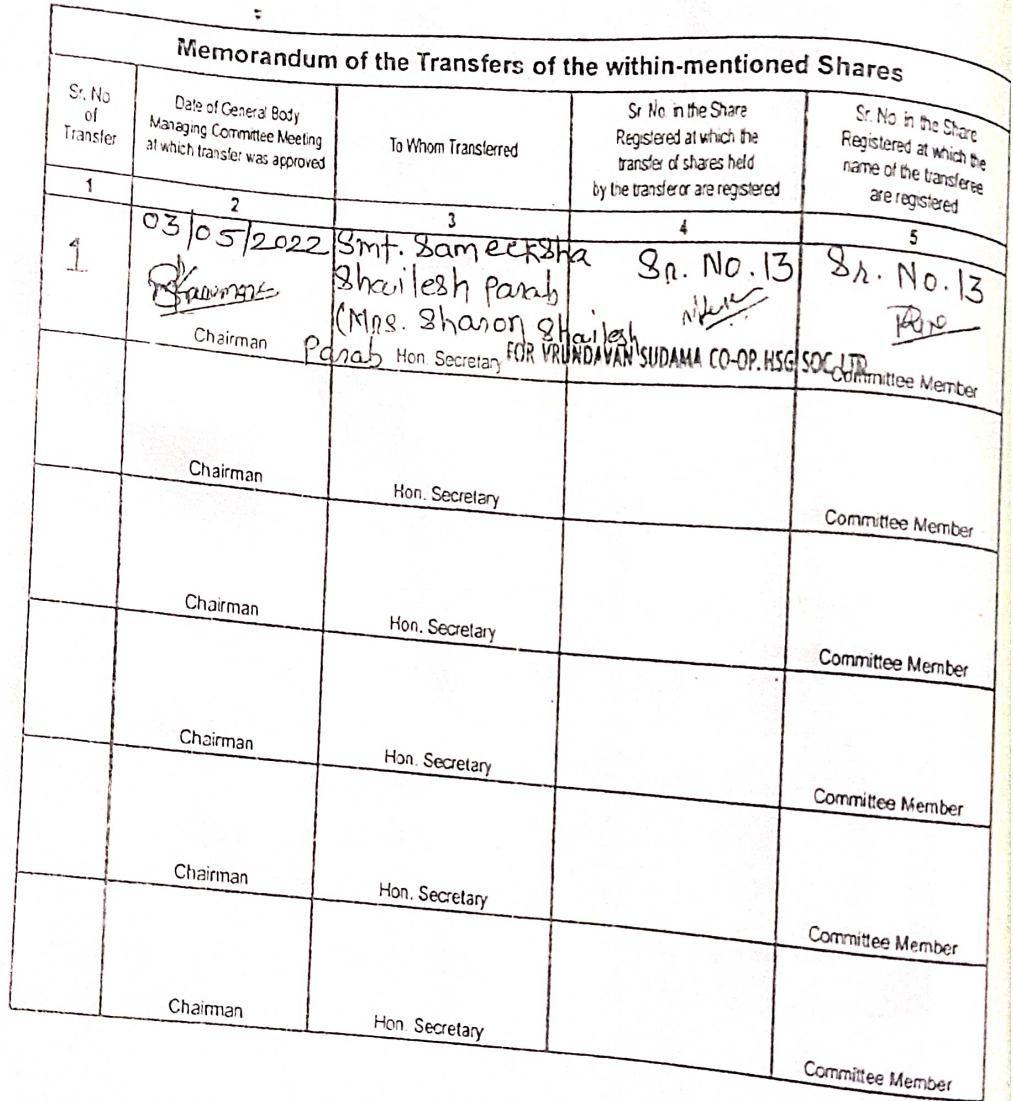 Memorandum of the Transfers of the within-mentioned Shares
Sr. No
of
Transfer
Date of General Body
Managing Committee Meeting
at which transfer was approved
To Whom Transferred
Sr No. in the Share
Registered at which the
transfer of shares held
by the transferor are registered
Sr. No in the Share
Registered at which the
name of the transferee
are registered
1
2
3
4
5
1
03/05/2022
Smt. Sameeksha
Shailesh Parab
(Mrs. Sharon Shailesh
Parab
Sr. No. 13
Sr. No. 13
Chairman
Hon. Secretary
FOR VRUNDAVAN SUDAMA CO-OP. HSG SOC LTD
Committee Member
Chairman
Hon. Secretary
Committee Member
Chairman
Hon. Secretary
Committee Member
Chairman
Hon. Secretary
Committee Member
Chairman
Hon. Secretary
Committee Member
Chairman
Hon. Secretary
Committee Member